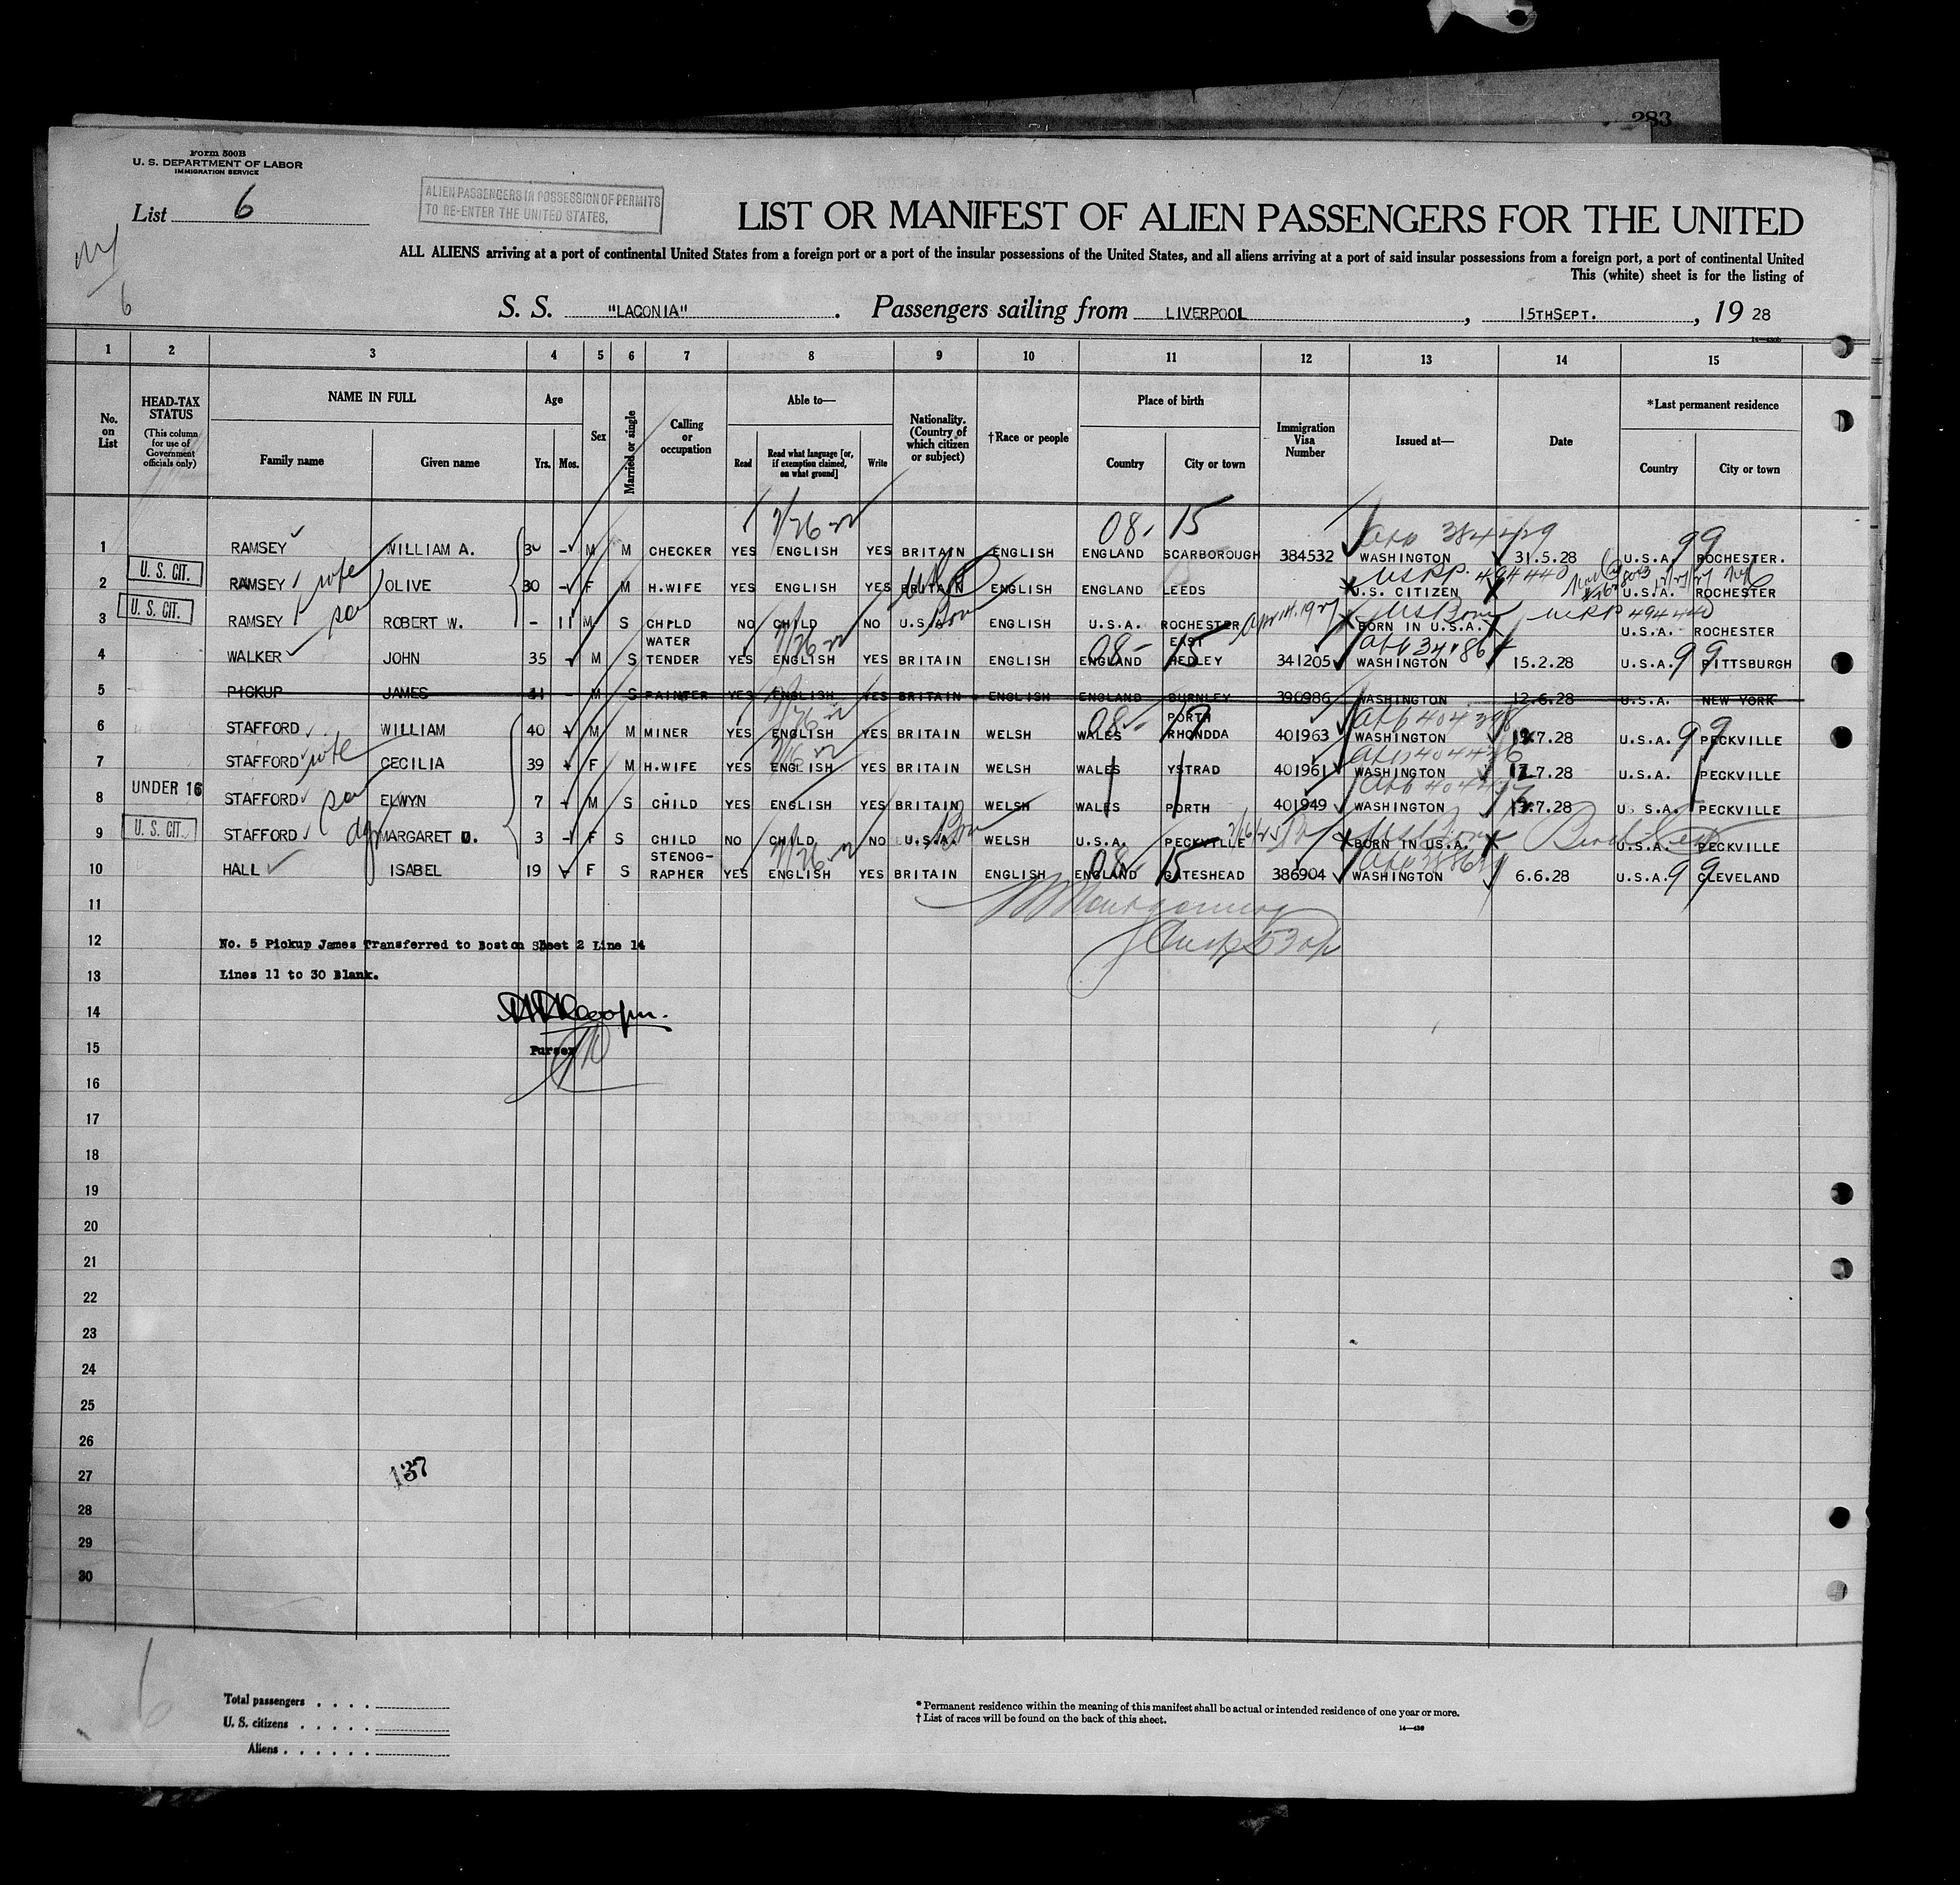 283
Form 500B
U. S. DEPARTMENT OF LABOR
IMMIGRATION SERVICE
List 6
ALIEN PASSENGERS IN POSSESSION OF PERMITS
TO RE-ENTER THE UNITED STATES.
LIST OR MANIFEST OF ALIEN PASSENGERS FOR THE UNITED
ALL ALIENS arriving at a port of continental United States from a foreign port or a port of the insular possessions of the United States, and all aliens arriving at a port of said insular possessions from a foreign port, a port of continental United
This (white) sheet is for the listing of
6
S. S. "LACONIA". Passengers sailing from LIVERPOOL, 15THSEPT., 19 28
1 2 3 4 5 6 7 8 9 10 11 12 13 14 15
No. on List
HEAD-TAX STATUS (This column for use of Government officials only)
NAME IN FULL
Family name Given name
Age
Yrs. Mos.
Sex
Married or single
Calling or occupation
Able to—
Read Read what language [or, if exemption claimed, on what ground] Write
Nationality. (Country of which citizen or subject)
†Race or people
Place of birth
Country City or town
Immigration Visa Number
Issued at—
Date
*Last permanent residence
Country City or town
08. 15 384429 99
1 RAMSEY WILLIAM A. 30 - M M CHECKER YES ENGLISH YES BRITAIN ENGLISH ENGLAND SCARBOROUGH 384532 WASHINGTON 31.5.28 U.S.A. ROCHESTER.
U. S. CIT. wife USPP. 494440
2 RAMSEY OLIVE 30 - F M H.WIFE YES ENGLISH YES BRITAIN ENGLISH ENGLAND LEEDS U.S. CITIZEN U.S.A. ROCHESTER
U. S. CIT. son Born Apr 14. 1927 US Born USPP 494440
3 RAMSEY ROBERT W. - 11 M S CHILD NO CHILD NO U.S.A. ENGLISH U.S.A. ROCHESTER BORN IN U.S.A. U.S.A. ROCHESTER
4 WALKER JOHN 35 - M S WATER TENDER YES ENGLISH YES BRITAIN ENGLISH ENGLAND EAST HEDLEY 341205 WASHINGTON 15.2.28 U.S.A. 99 PITTSBURGH
5 PICKUP JAMES 41 - M S PAINTER YES ENGLISH YES BRITAIN ENGLISH ENGLAND BURNLEY 396986 WASHINGTON 12.6.28 U.S.A. NEW YORK
6 STAFFORD WILLIAM 40 M M MINER YES ENGLISH YES BRITAIN WELSH WALES PORTH RHONDDA 401963 WASHINGTON 12.7.28 U.S.A. 99 PECKVILLE
wife
7 STAFFORD CECILIA 39 F M H.WIFE YES ENGLISH YES BRITAIN WELSH WALES YSTRAD 401961 WASHINGTON 12.7.28 U.S.A. PECKVILLE
UNDER 16 son
8 STAFFORD ELWYN 7 - M S CHILD YES ENGLISH YES BRITAIN WELSH WALES PORTH 401949 WASHINGTON .7.28 U.S.A. PECKVILLE
U. S. CIT. Born US Born
9 STAFFORD MARGARET D. 3 - F S CHILD NO CHILD NO U.S.A. WELSH U.S.A. PECKVILLE BORN IN U.S.A. U.S.A. PECKVILLE
10 HALL ISABEL 19 F S STENOG-RAPHER YES ENGLISH YES BRITAIN ENGLISH ENGLAND 08 15 GATESHEAD 386904 WASHINGTON 6.6.28 U.S.A. 99 CLEVELAND
11
Montgomery
12 No. 5 Pickup James Transferred to Boston Sheet 2 Line 14
13 Lines 11 to 30 Blank.
14
15 Purser
16
17
18
19
20
21
22
23
24
25
26
27 137
28
29
30
6
Total passengers . . . .
U. S. citizens . . . . .
Aliens . . . . . .
* Permanent residence within the meaning of this manifest shall be actual or intended residence of one year or more.
† List of races will be found on the back of this sheet.
14—430